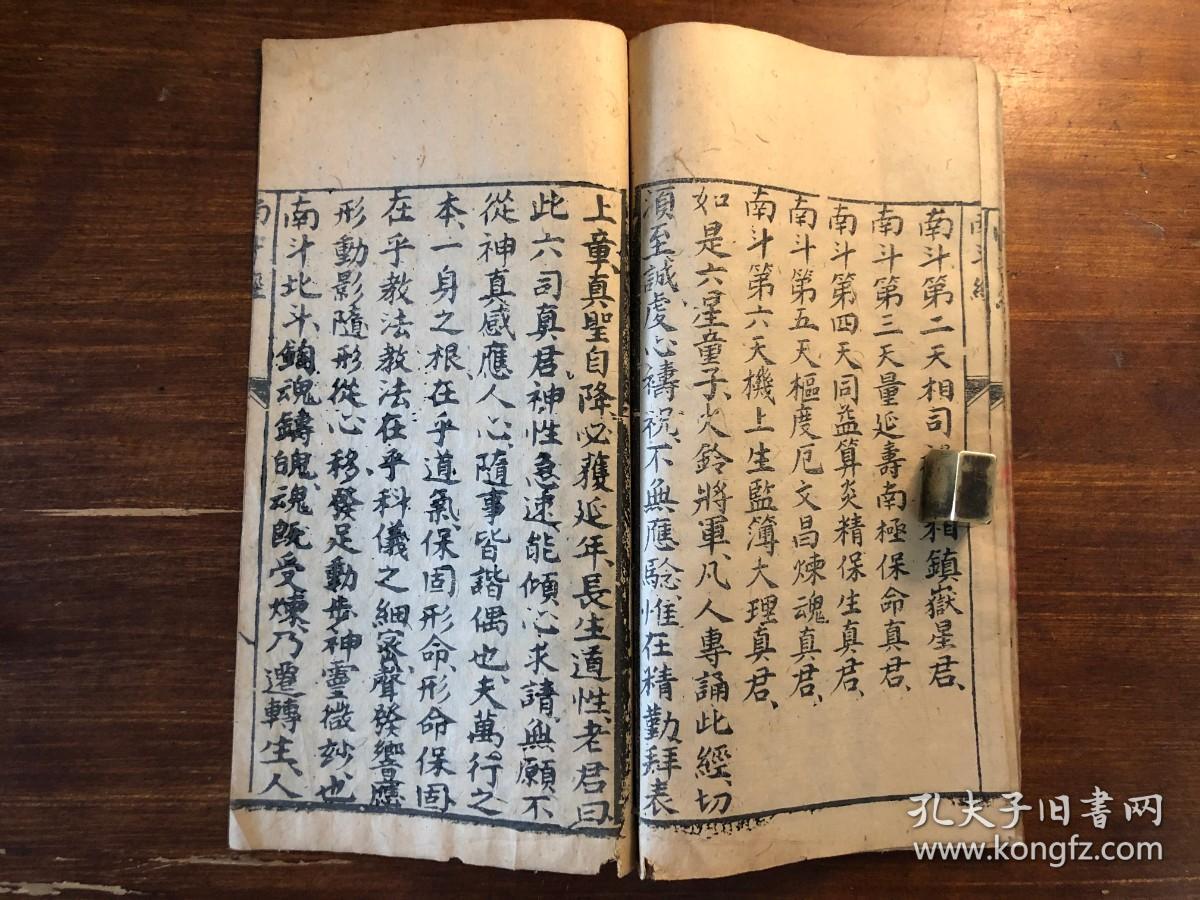 南斗經
南斗第二天相司祿 相鎮嶽星君、
南斗第三天量延壽南極保命真君、
南斗第四天同益算炎精保生真君、
南斗第五天樞度厄文昌煉魂真君、
南斗第六天機上生監簿大理真君、
如是六星童子、火鈴將軍、凡人專誦此經、切
須至誠虔心禱祝、不無應驗、惟在精勤、拜表
上章、真聖自降、必獲延年、長生道性、老君曰、
此六司真君、神性急速、能傾心求請、無願不
從、神真感應人心、隨事皆諧偶也、夫萬行之
本、一身之根、在乎道氣、保固形命、形命保固、
在乎教法、教法在乎科儀之細密、聲發響應、
形動影隨、形從心移、發足動步、神靈微妙也、
南斗北斗、 魂鑄魄、魂既受煉、乃遷轉生人
南斗經
孔夫子旧书网
www.kongfz.com